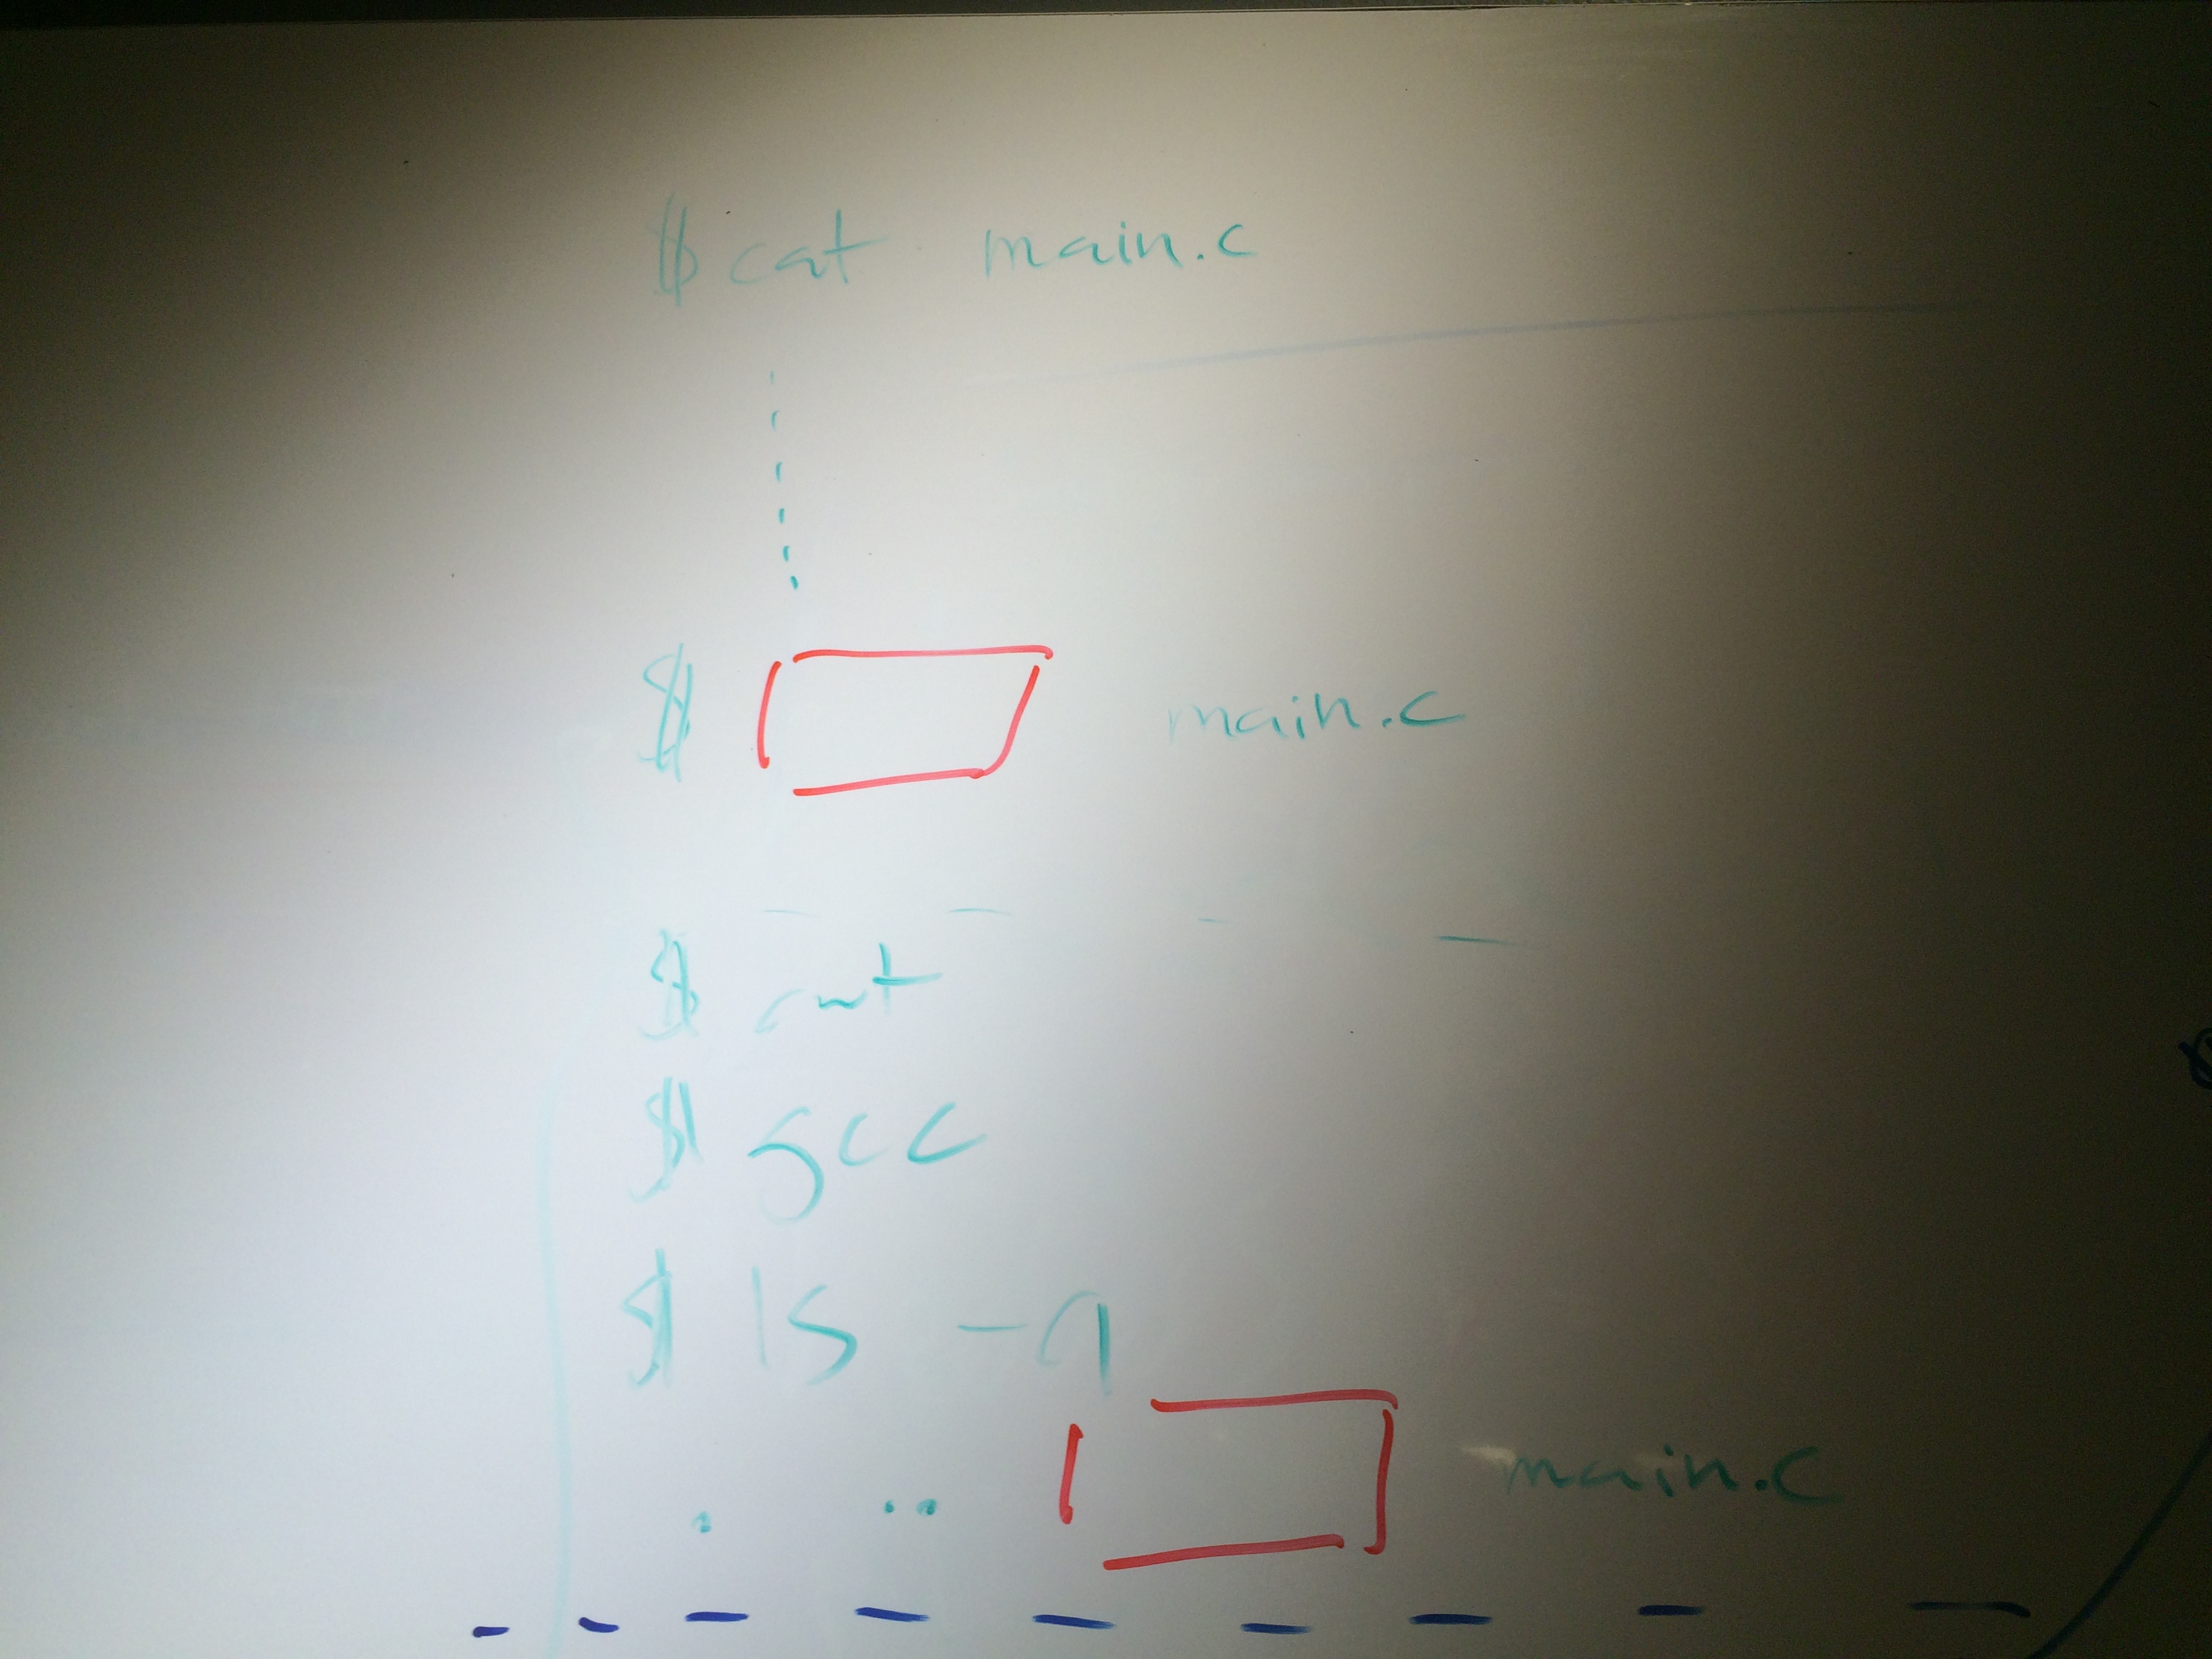 $ cat main.c
$ main.c
$
$ gcc
$ ls -a
. .. main.c